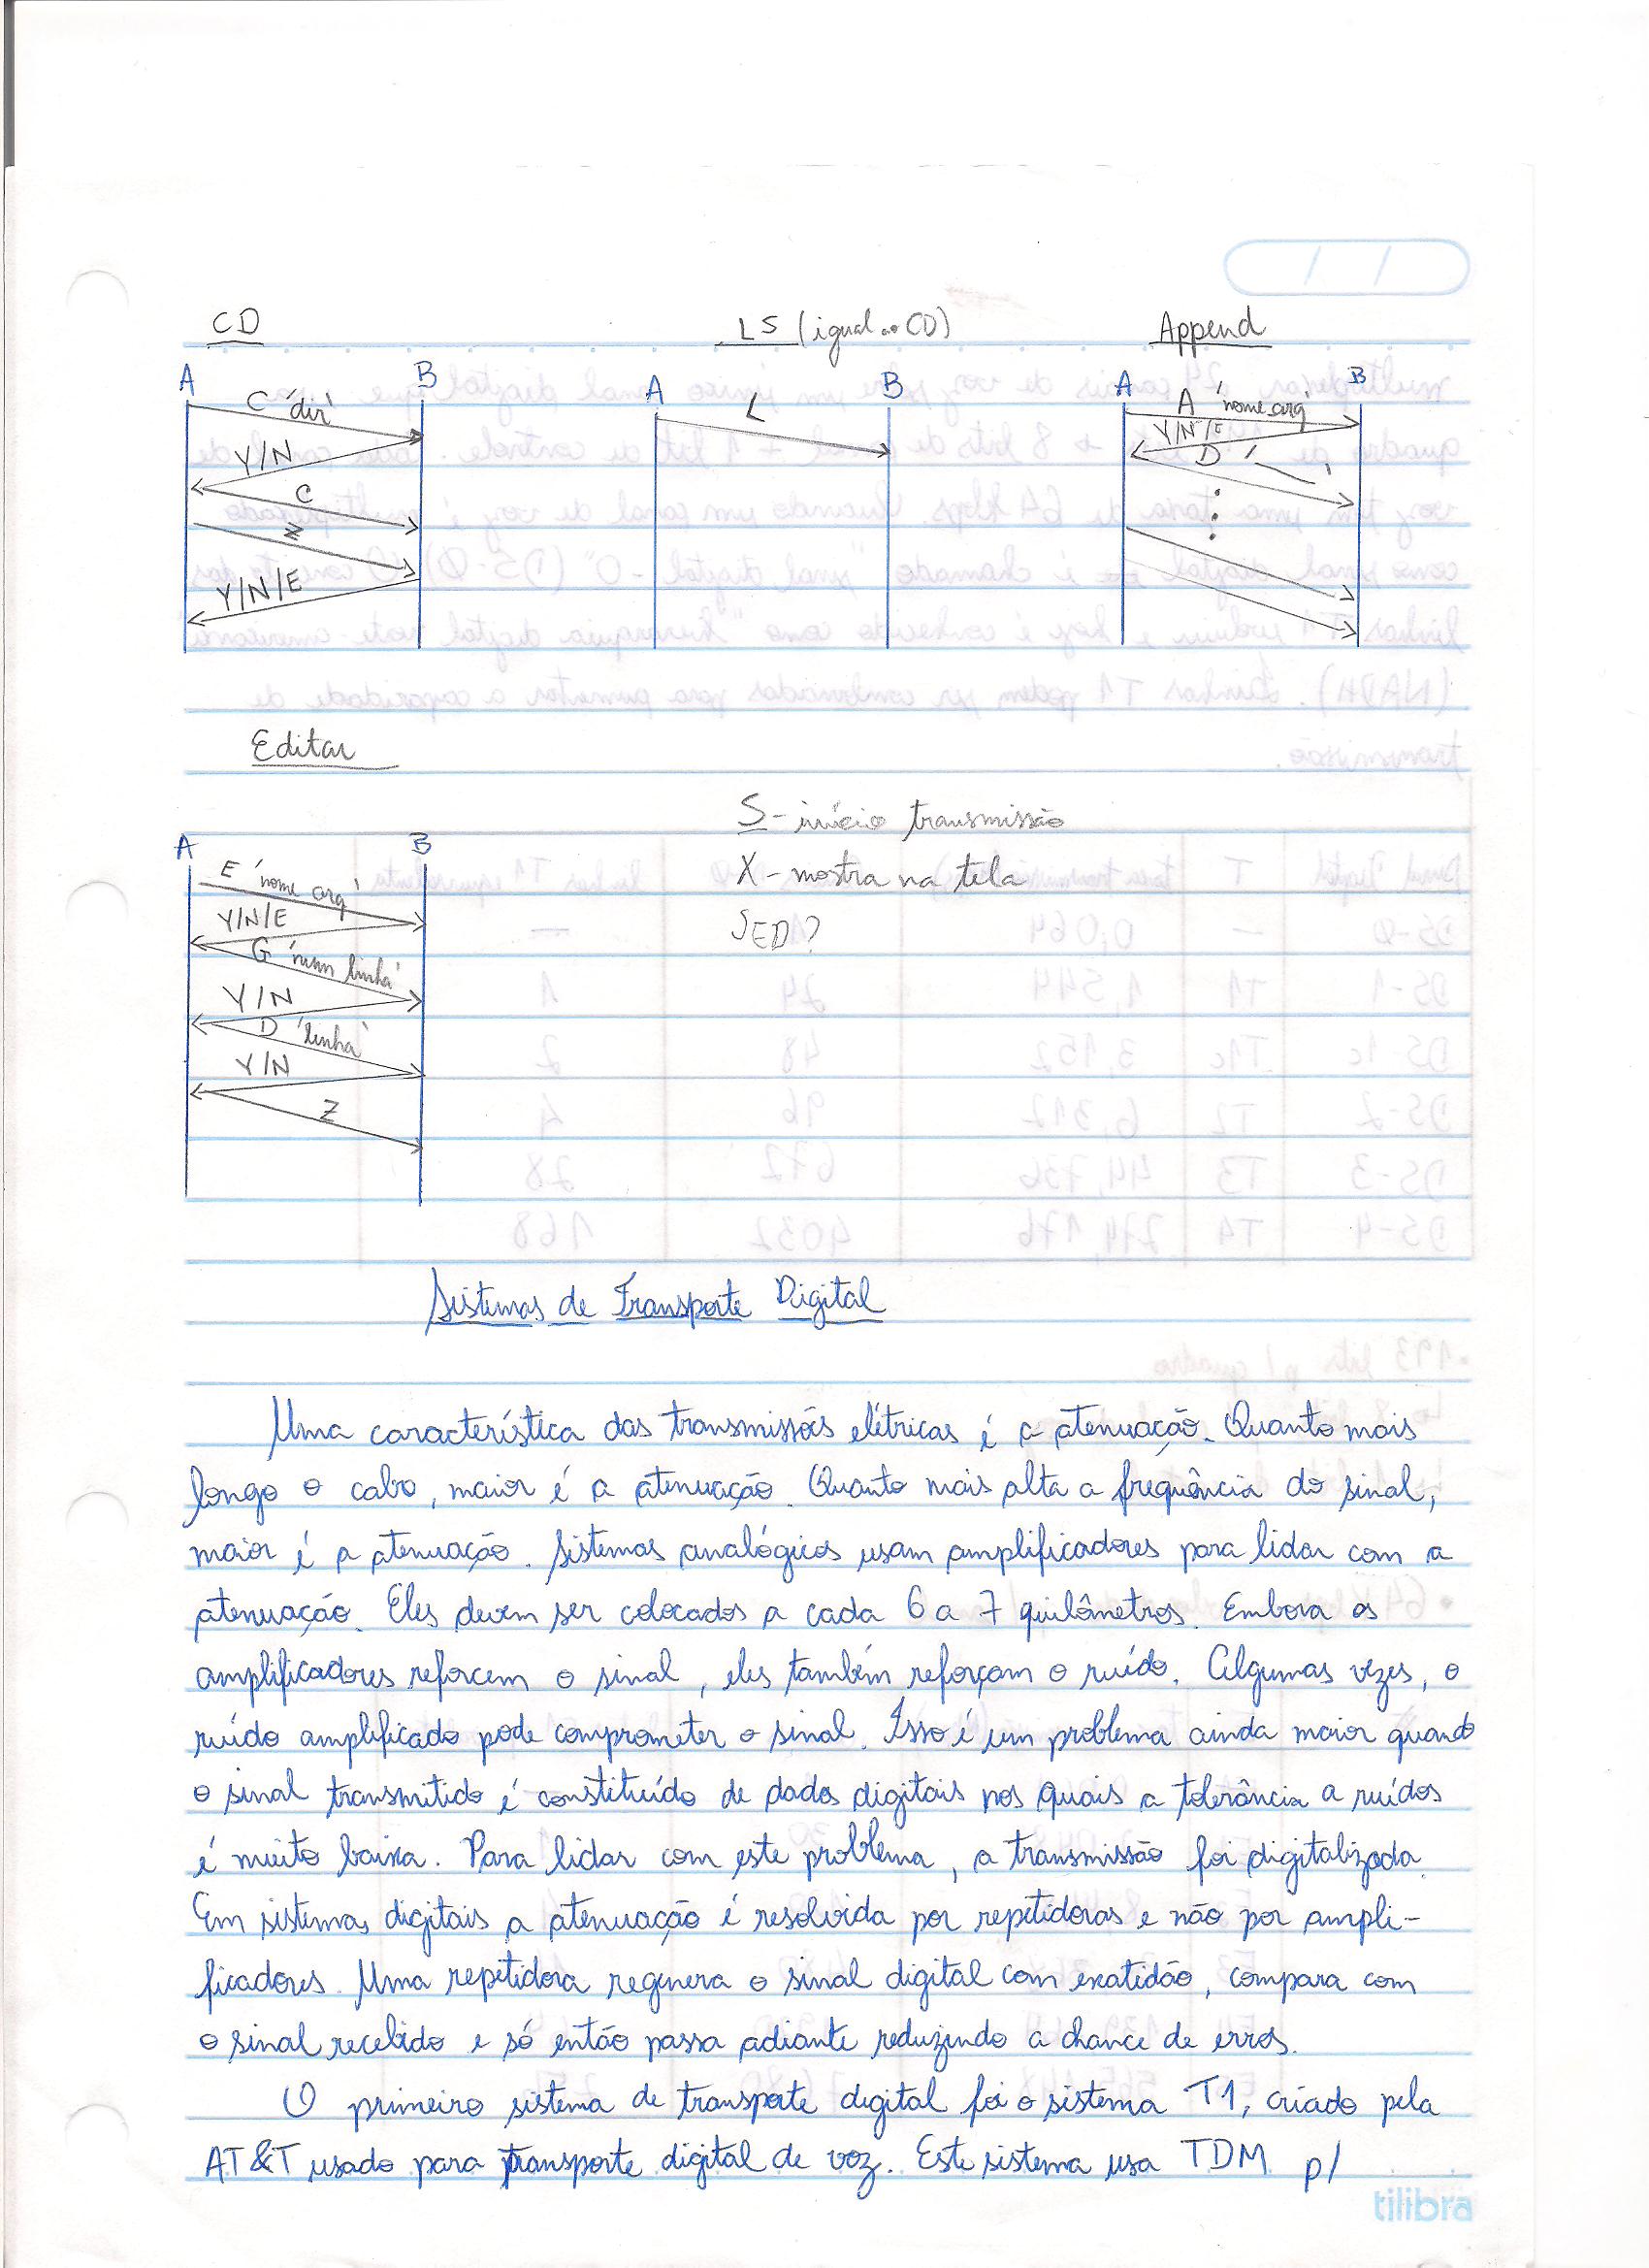 CD
LS (igual ao CD)
Append
A B
C 'dir'
Y/N
C
Z
Y/N/E
A B
L
A B
A 'nome_arq'
Y/N/E
D '___'
Editar
A B
E 'nome arq'
Y/N/E
G 'num linha'
Y/N
D 'linha'
Y/N
Z
S - início transmissão
X - mostra na tela
SED?
Sistemas de Transporte Digital
Uma característica das transmissões elétricas é a atenuação. Quanto mais
longo o cabo, maior é a atenuação. Quanto mais alta a frequência do sinal,
maior é a atenuação. Sistemas analógicos usam amplificadores para lidar com a
atenuação. Eles devem ser colocados a cada 6 a 7 quilômetros. Embora os
amplificadores reforcem o sinal, eles também reforçam o ruído. Algumas vezes, o
ruído amplificado pode comprometer o sinal. Isso é um problema ainda maior quando
o sinal transmitido é constituído de dados digitais nos quais a tolerância a ruídos
é muito baixa. Para lidar com este problema, a transmissão foi digitalizada.
Em sistemas digitais a atenuação é resolvida por repetidoras e não por ampli-
ficadores. Uma repetidora regenera o sinal digital com exatidão, compara com
o sinal recebido e só então passa adiante reduzindo a chance de erros.
O primeiro sistema de transporte digital foi o sistema T1, criado pela
AT&T usado para transporte digital de voz. Este sistema usa TDM p/
tilibra